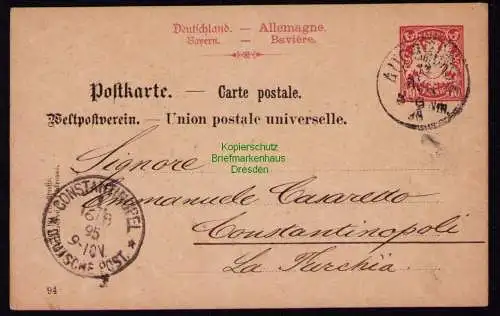 Deutschland. — Allemagne.
Bayern. — Bavière.
Postkarte. — Carte postale.
Weltpostverein. — Union postale universelle.
Kopierschutz
Briefmarkenhaus
Dresden
Signore
Emmanuele Casaretto
Constantinopoli
La Turchia
CONSTANTINOPEL
16/8
95
9-10V.
* DEUTSCHE POST. *
94